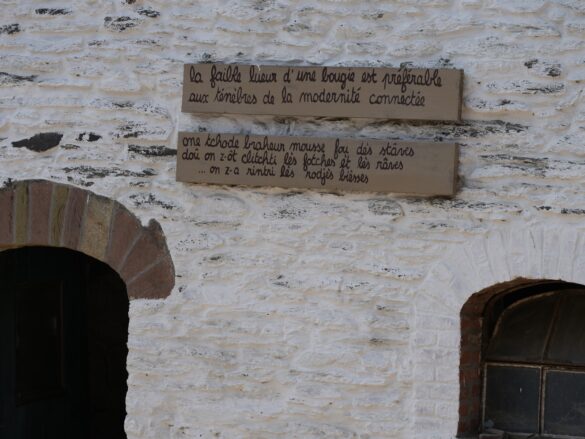 la faible lueur d'une bougie est préférable
aux ténèbres de la modernité connectée
one tchode braheur mousse fou dès stâves
doû on z-ôt clitchti lès fotches et lès râves
... on z-a rintri lès rodjes biesses